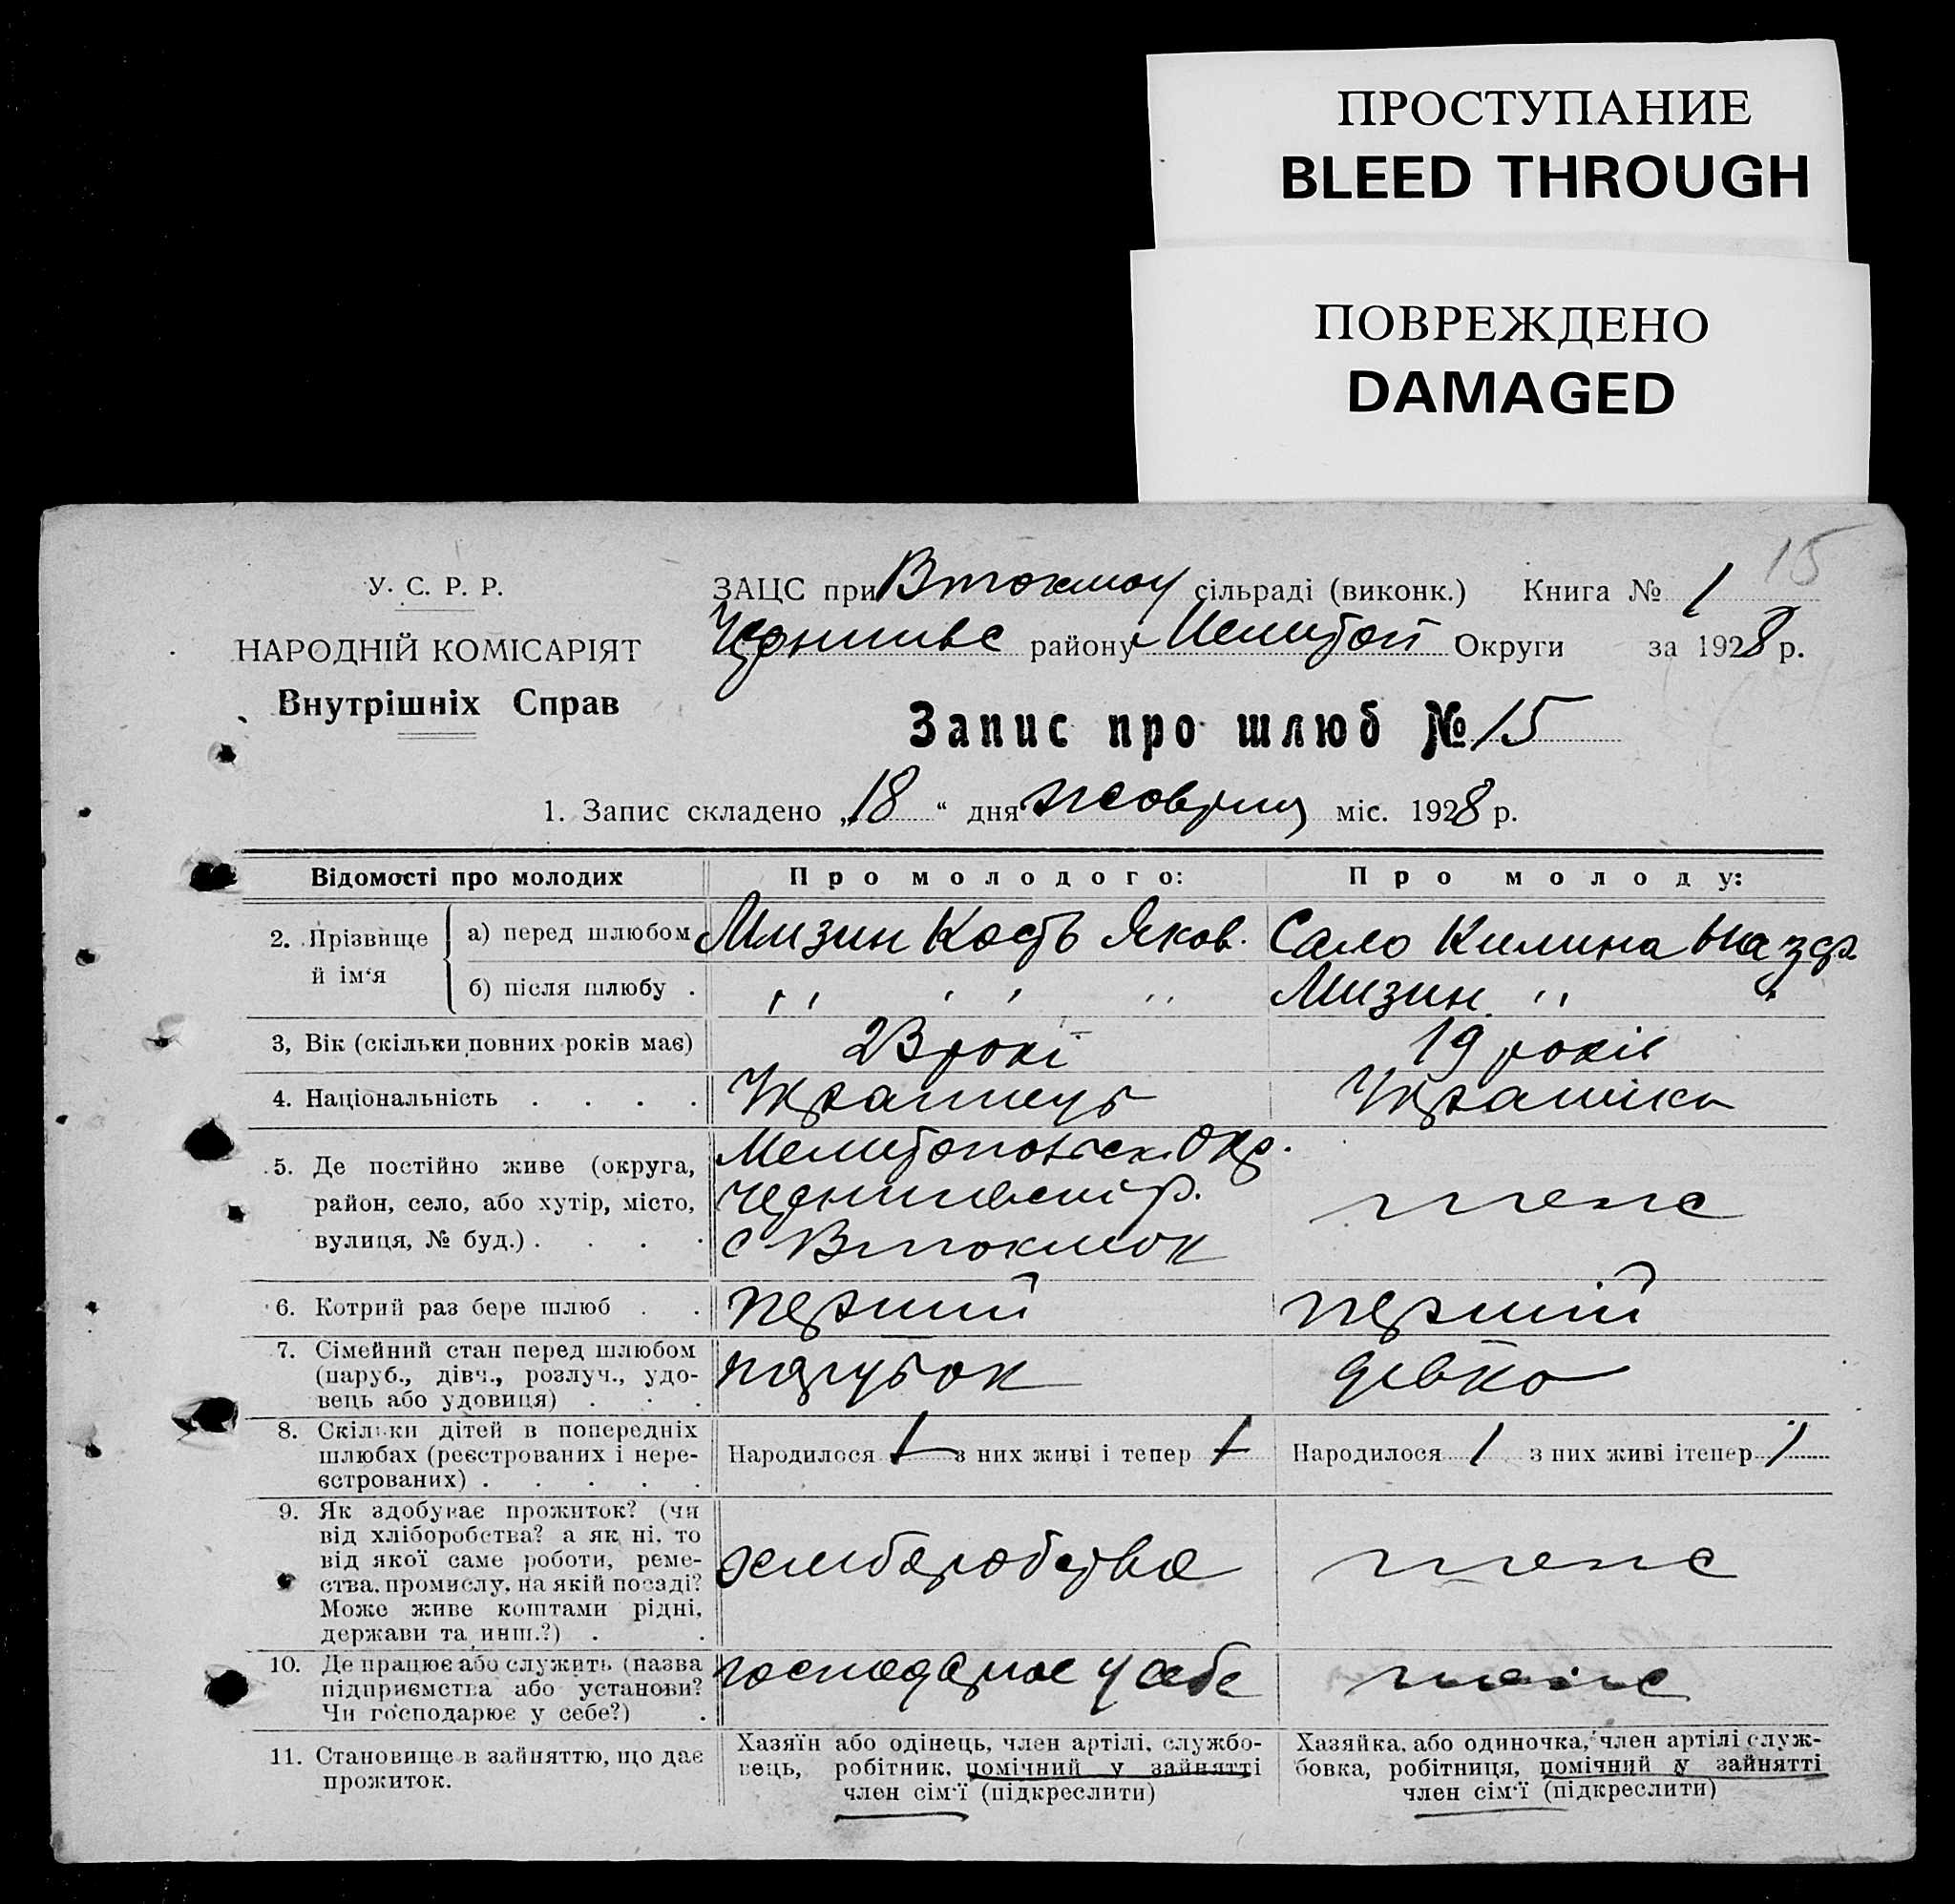 ПРОСТУПАНИЕ
BLEED THROUGH
ПОВРЕЖДЕНО
DAMAGED
15
У. С. Р. Р.
НАРОДНІЙ КОМІСАРІЯТ
Внутрішніх Справ
ЗАЦС при Втокмоц сільраді (виконк.) Книга № 1
Чернигивс району Мелитоп Округи за 1928 р.
Запис про шлюб № 15
1. Запис складено „18“ дня жовтня міс. 1928 р.
Відомості про молодих Про молодого: Про молоду:
2. Прізвище й ім‘я
а) перед шлюбом Мизин Кость Яков. Сало Килина Назар
б) після шлюбу . " " " Мизин " "
3, Вік (скільки повних років має) 23 рокі 19 років
4. Національність . . . . Украинець Украінка
5. Де постійно живе (округа, район, село, або хутір, місто, вулиця, № буд.) . . . .
Мелитопольск. Окр.
Чернигивский р.
с Втокмок
тоже
6. Котрий раз бере шлюб . . перший перший
7. Сімейний стан перед шлюбом (паруб., дівч., розлуч., удовець або удовиця) . . . парубок дівка
8. Скільки дітей в попередніх шлюбах (реєстрованих і нереєстрованих) . . . . .
Народилося з них живі і тепер
Народилося з них живі ітепер
9. Як здобуває прожиток? (чи від хліборобства? а як ні, то від якої саме роботи, ремества, промислу, на якій посаді? Може живе коштами рідні, держави та инш.?) . .
хлиборобства тоже
10. Де працює або служить (назва підприємства або установи? Чи господарює у себе?) .
господарює у себе тоже
11. Становище в зайняттю, що дає прожиток.
Хазяїн або одінець, член артілі, службовець, робітник, помічний у зайнятті член сім‘ї (підкреслити)
Хазяйка, або одиночка, член артілі службовка, робітниця, помічний у зайнятті член сім‘ї (підкреслити)